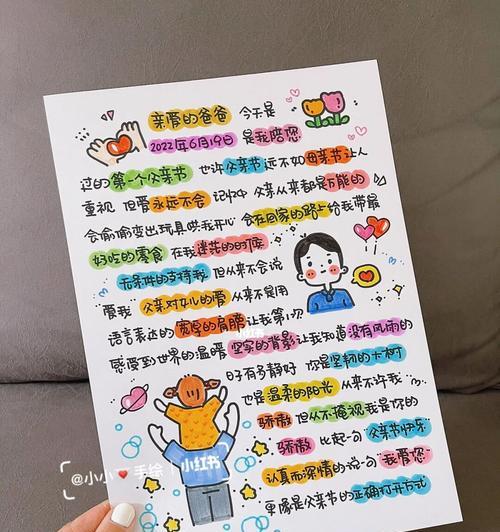 亲爱的爸爸 今天是
2022年6月19日 是我陪您
过的第一个父亲节 也许父亲节远不如母亲节让人
重视 但爱永远不会 记忆中 父亲从来都是万能的
会偷偷变出玩具哄我开心 会在回家的路上给我带最
好吃的零食 在我迷茫的时候
无条件的支持我 但从来不会说
爱我 父亲对女儿的爱从来不是用
语言表达的 宽厚的肩膀让我第1次
感受到世界的温暖 坚实的背影让我知道没有风雨的
日子有多静好 你是坚韧的大树
也是温柔的阳光 从来不许我
骄傲 但从不掩视我是你的
骄傲 比起一句 父亲节快乐
认真而深情的说一句"我爱您"
更像是父亲节的正确打开方式
小红书
小红书
@小小❤手绘
小红书